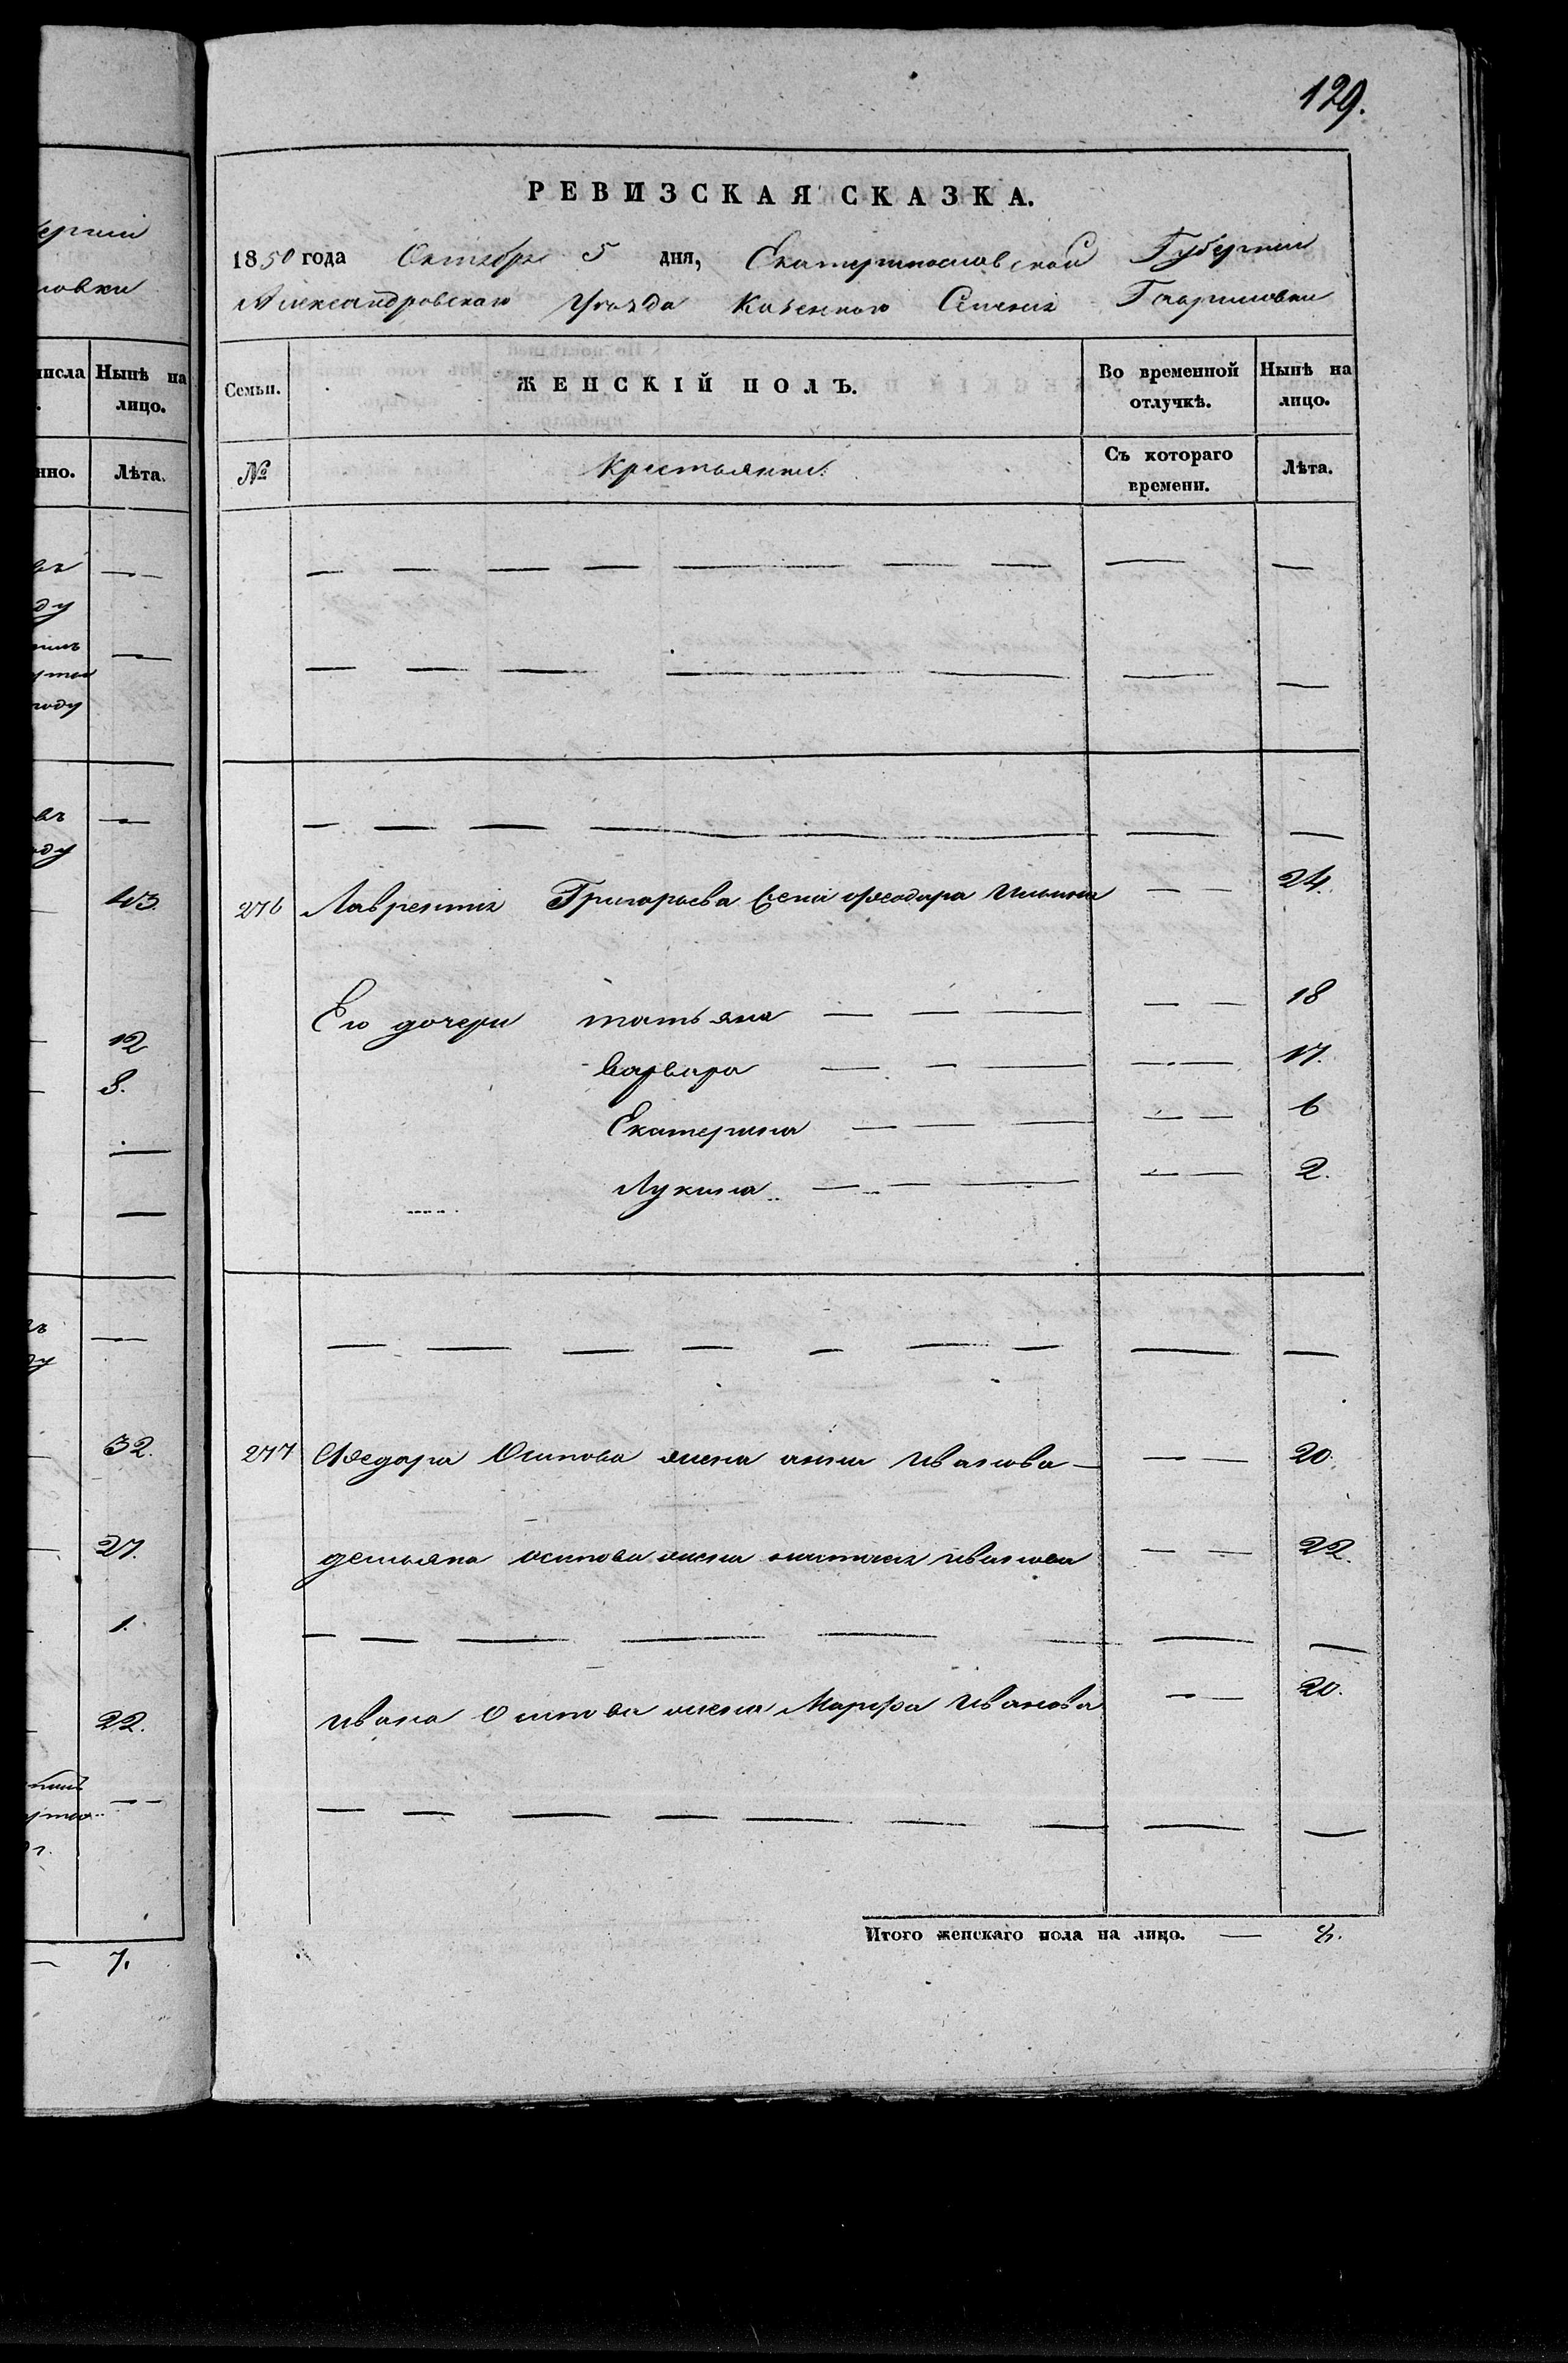 129.
ерніи
ловки
исла Нынѣ на
лицо.
нно. Лѣта.
въ
ду
году
въ
оду
43.
12
8.
ду
32.
27.
1.
22.
7.
РЕВИЗСКАЯ СКАЗКА.
1850 года Октября 5 дня, Екатеринославской Губерніи
Александровскаго Уѣзда Казеннаго Селенія Гавриловки
Семьи. ЖЕНСКІЙ ПОЛЪ. Во временной отлучкѣ. Нынѣ на лицо.
№ Крестьянки Съ котораго времени. Лѣта.
276 Лаврентія Григорьева жена Феодора Ильина — — 24.
Его дочери татьяна — — — — — 18
варвара — — — — — 17.
Екатерина — — — — — 6
Лукия — — — — — 2.
277 Федора Осипова жена анна Иванова — — — 20.
демьяна осипова жена иванова — — 22.
ивана Осипова жена Марфа Иванова — — 20.
Итого женскаго пола на лицо. — 8.